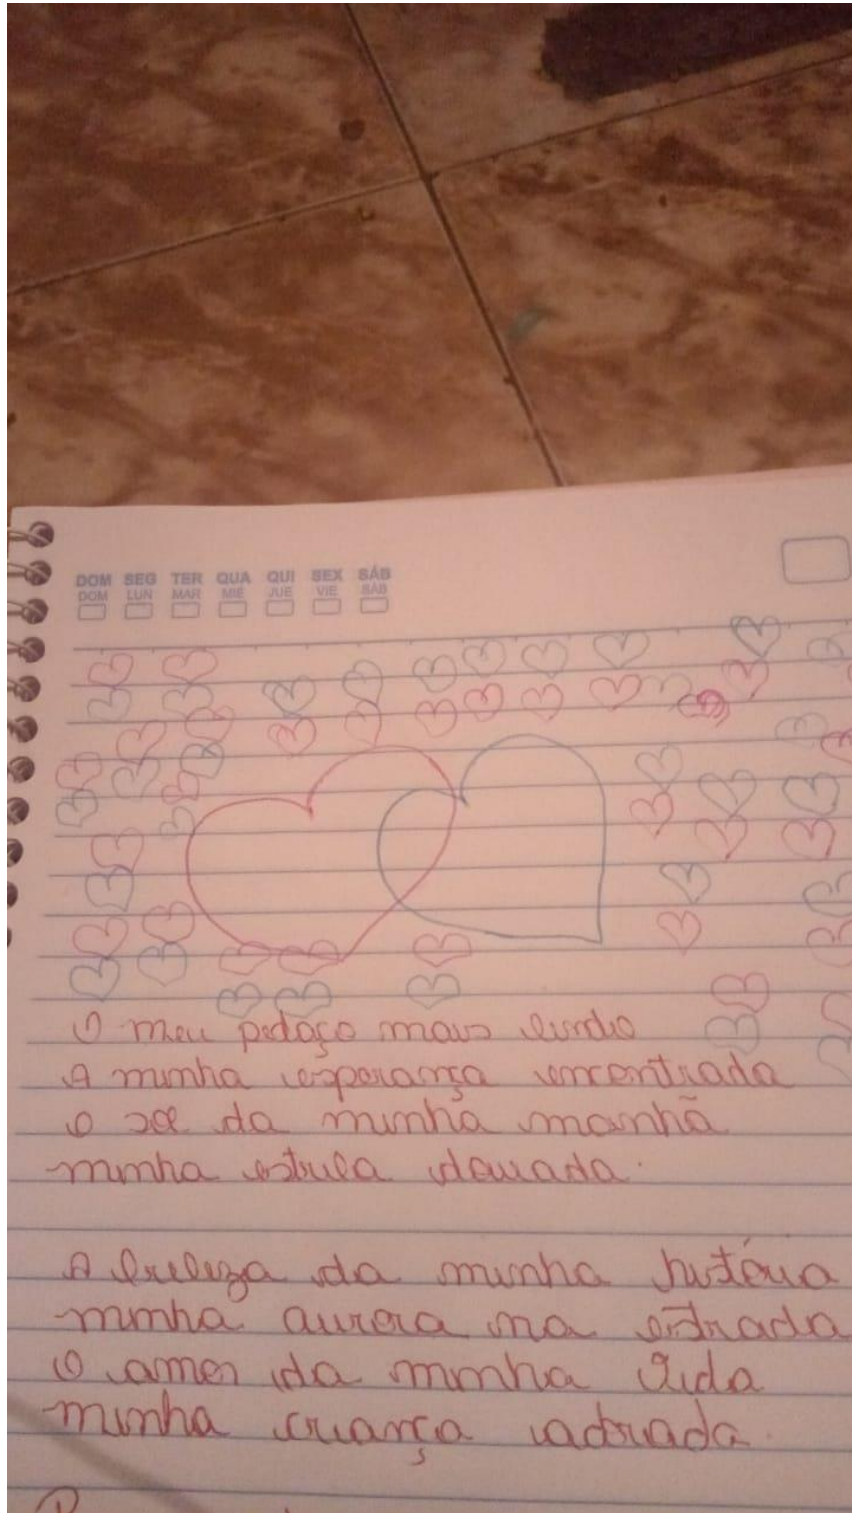 DOM SEG TER QUA QUI SEX SÁB
DOM LUN MAR MIÉ JUE VIE SÁB
O meu pedaço mais lindo
A minha esperança encontrada
O sol da minha manhã
minha estrela dourada.
A beleza da minha história
minha aurora na estrada
O amor da minha vida
minha criança adorada.